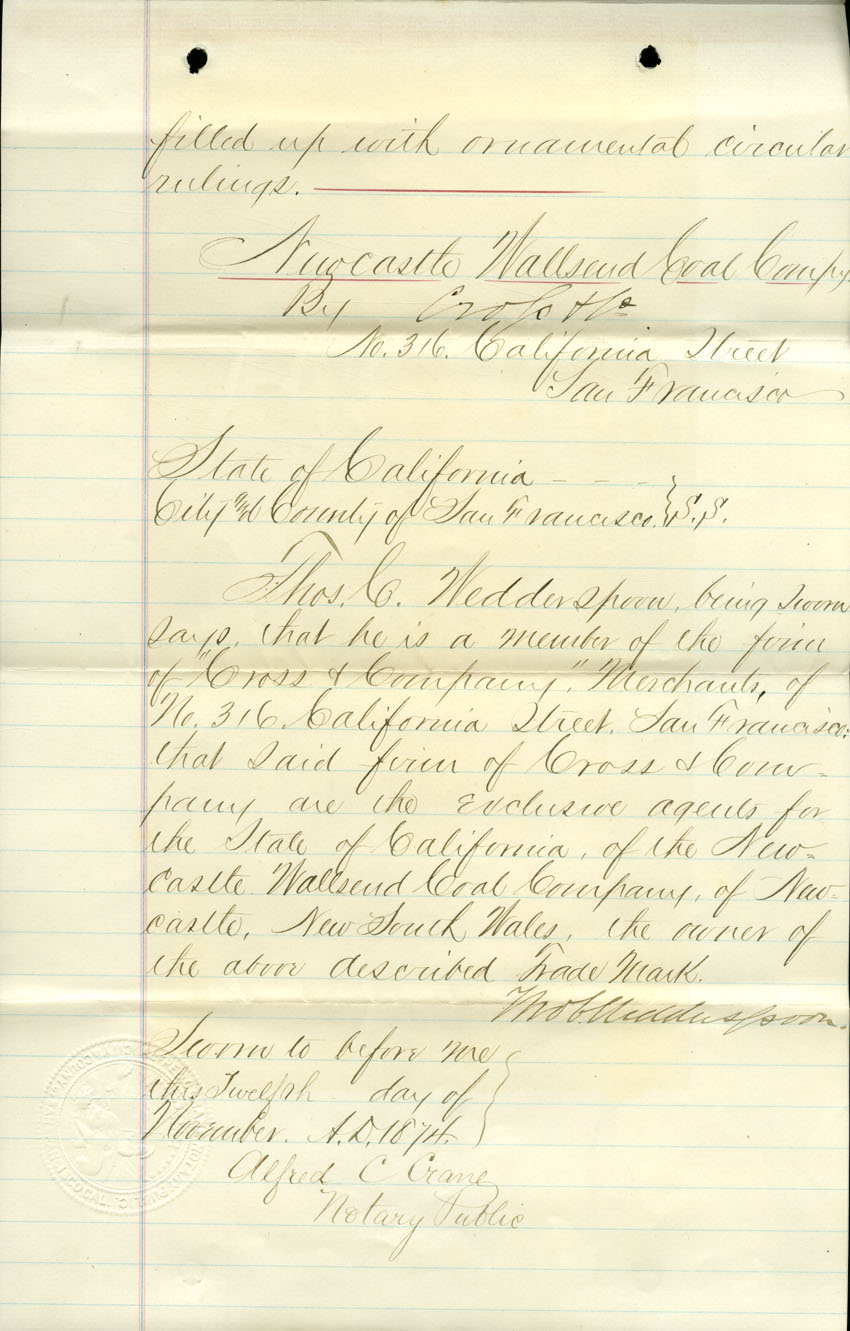 filled up with ornamental circular
rulings.
Newcastle Wallsend Coal Compy
By Cross & Co
No. 316. California Street
San Francisco
State of California - - -
City and County of San Francisco. } S.S.
Thos. C. Wedderspoon, being sworn
says, that he is a member of the firm
of "Cross & Company", Merchants, of
No. 316. California Street, San Francisco:
that said firm of Cross & Com-
pany are the exclusive agents for
the State of California, of the New-
castle Wallsend Coal Company, of New-
castle, New South Wales, the owner of
the above described Trade Mark.
Thos C Wedderspoon.
Sworn to before me
this Twelfth day of
November. A.D. 1874.
Alfred C Crane
Notary Public